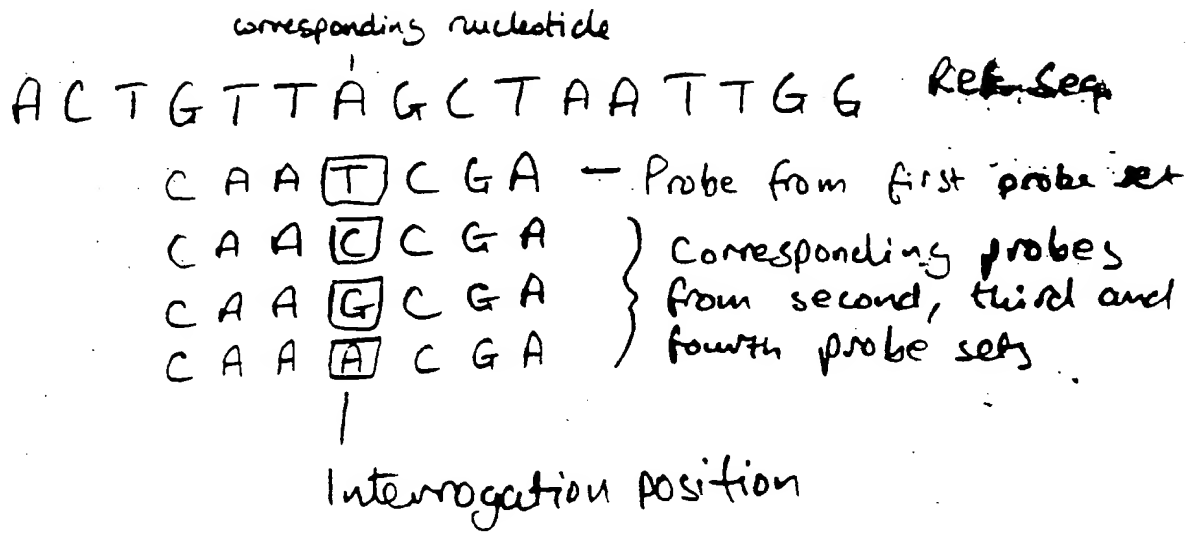 corresponding nucleotide
A C T G T T A G C T A A T T G G Ref. Seq
C A A T C G A - Probe from first probe set
C A A C C G A Corresponding probes
C A A G C G A from second, third and
C A A A C G A fourth probe sets
Interrogation position